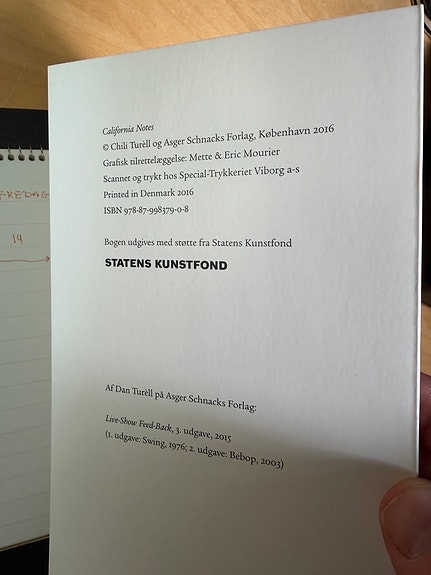 California Notes
© Chili Turèll og Asger Schnacks Forlag, København 2016
Grafisk tilrettelæggelse: Mette & Eric Mourier
Scannet og trykt hos Special-Trykkeriet Viborg a-s
Printed in Denmark 2016
ISBN 978-87-998379-0-8
Bogen udgives med støtte fra Statens Kunstfond
STATENS KUNSTFOND
Af Dan Turèll på Asger Schnacks Forlag:
Live-Show Feed-Back, 3. udgave, 2015
(1. udgave: Swing, 1976; 2. udgave: Bebop, 2003)
FREDAG
14